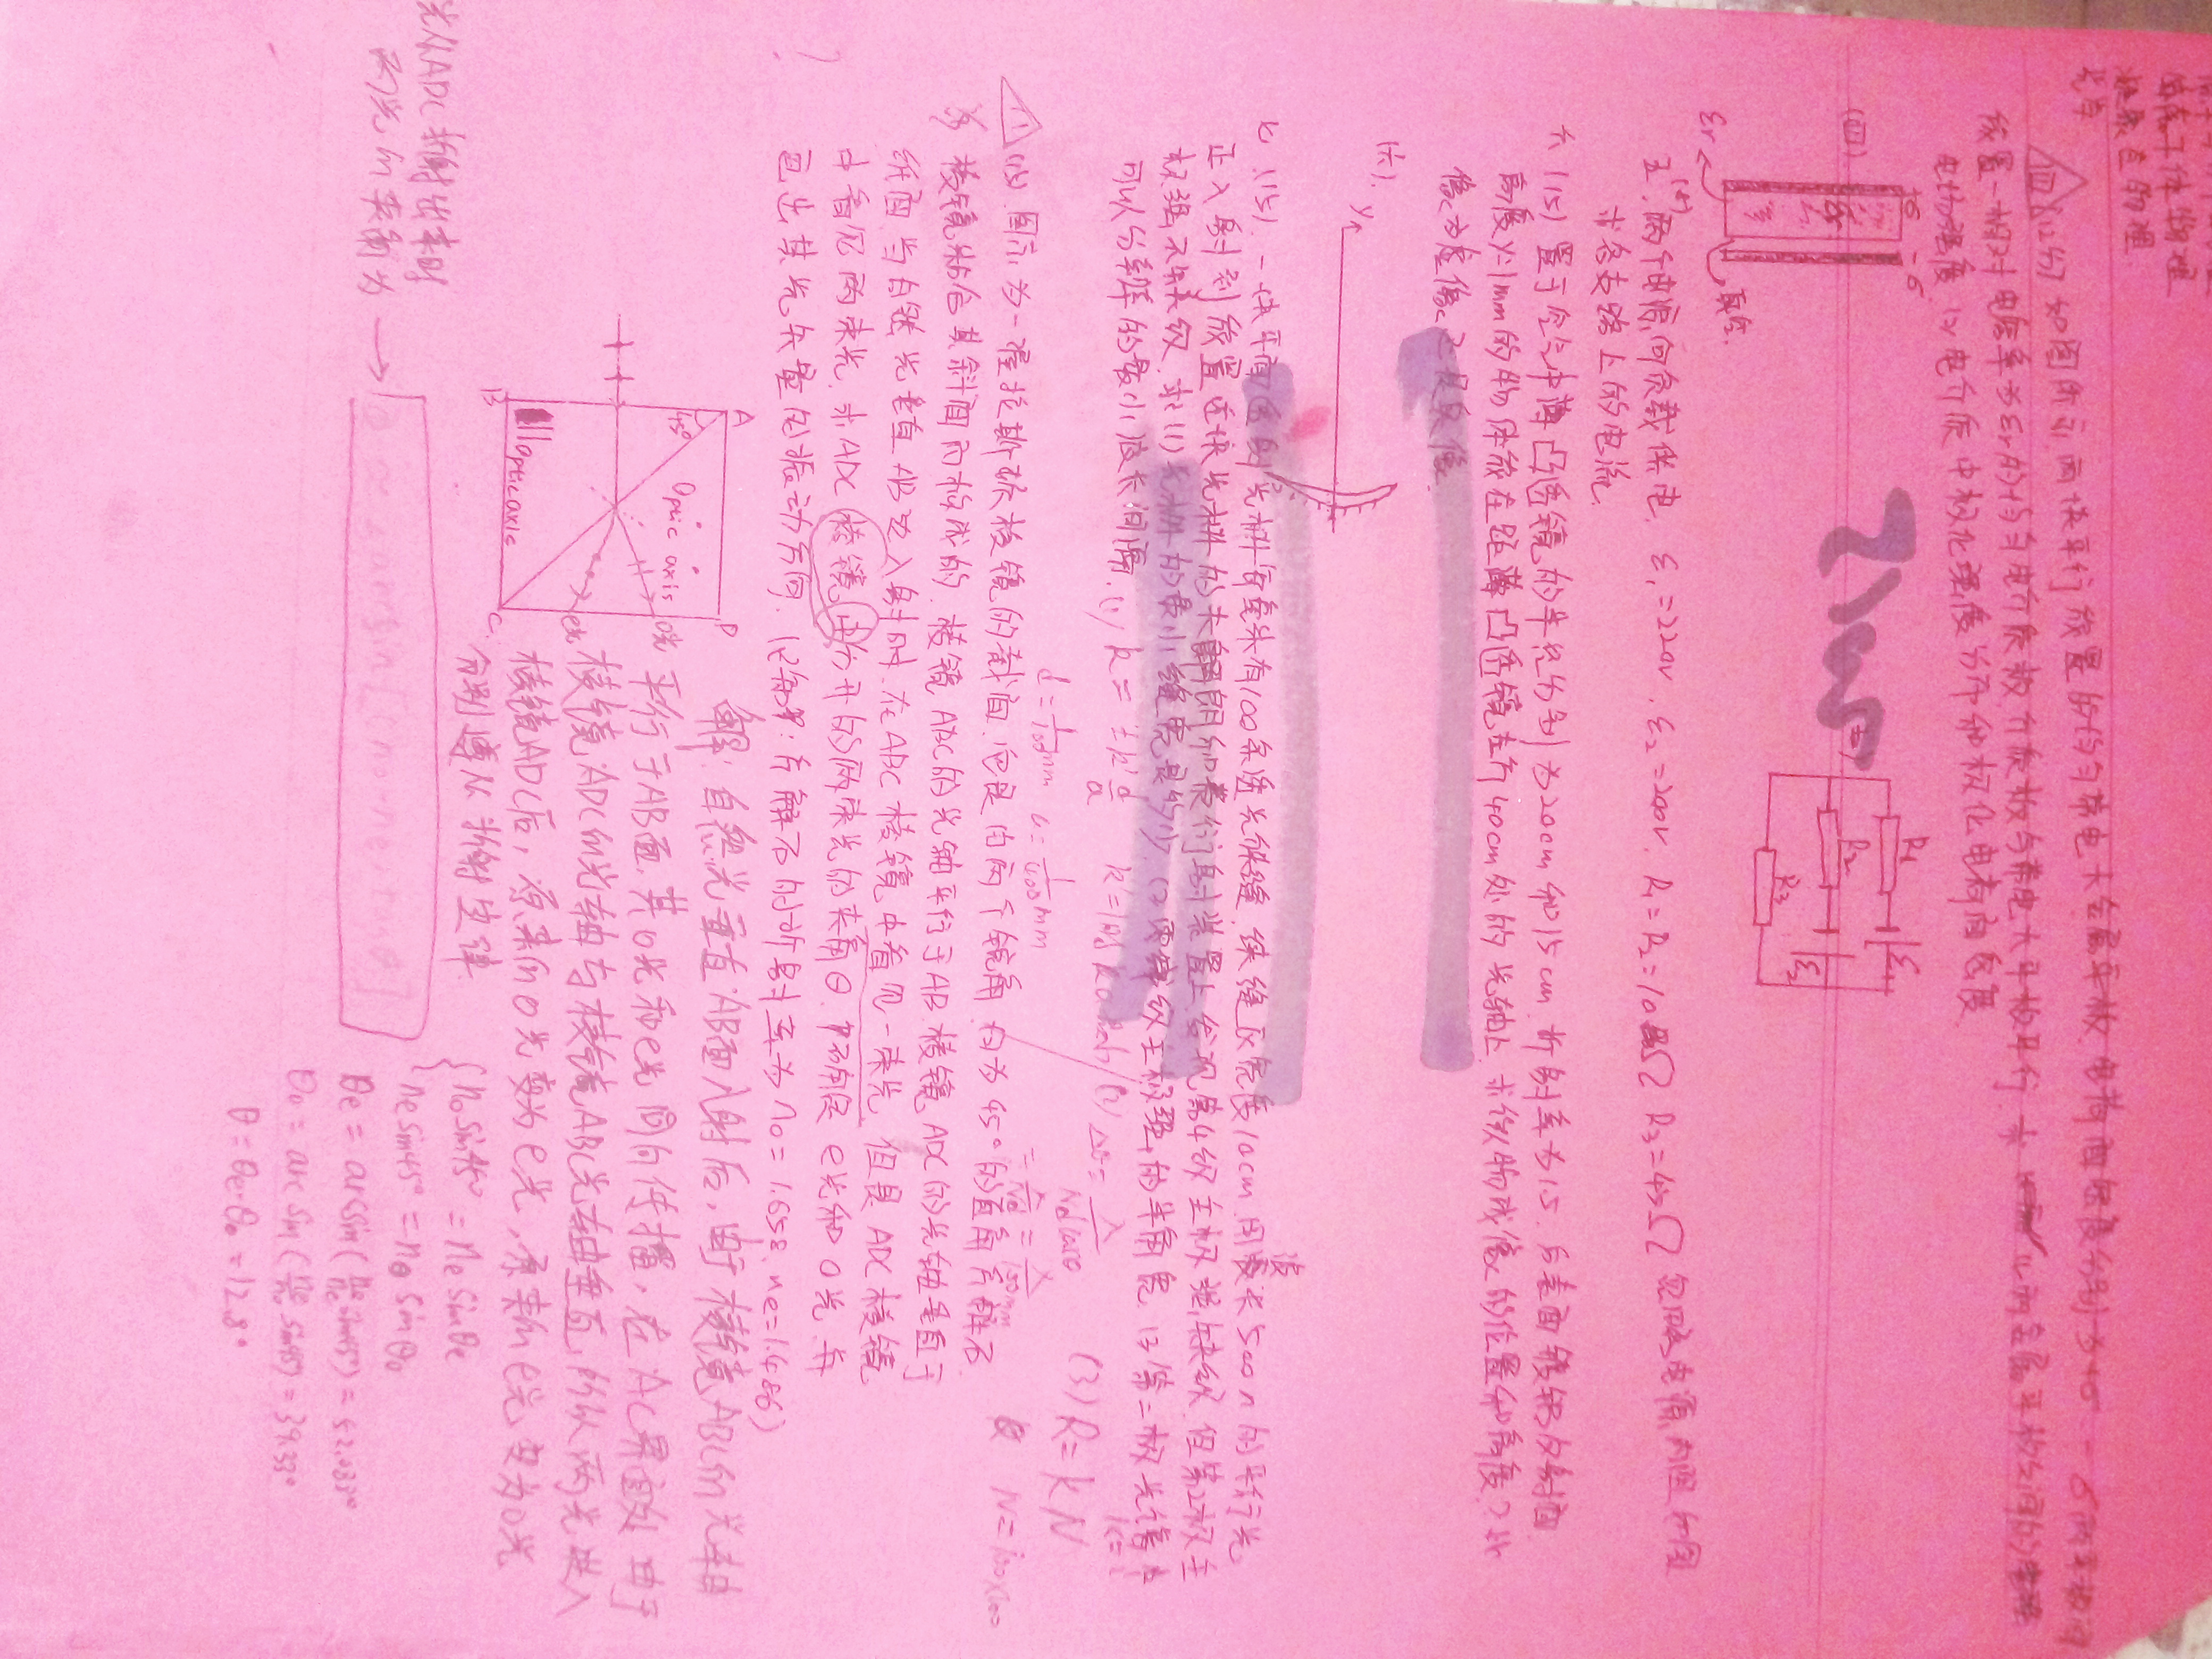 等离子体物理
凝聚态物理
光学
四 (12分) 如图所示,两快平行放置的均匀带电大金属平板,电荷面密度分别为+σ - σ 两平板间
放置一相对电容率为εr的均匀电介质板,介质板与带电大平板平行,求 (1)两金属平板之间的
电场强度 (2)电介质中极化强度分布和极化电荷面密度.
+σ - σ
(四)
εr
εr
真空.
R1 ε1
R2
ε2
R3
五. 两个电源向负载供电, ε1=220V, ε2=200V, R1=R2=10Ω R3=45Ω 忽略电源内阻 如图
求各支路上的电流.
六 (15) 置于空气中薄凸透镜的半径分别为20cm和15cm,折射率为1.5,后表面镀铝反射面
高度y=1mm的物体放在距薄凸透镜左方40cm处的光轴上,求微物成像的位置和高度?此
像为虚像还是实像.
(六).
y
七 (15). 一快平面透射光栅每毫米有100条透光狭缝,狭缝区宽度10cm,用波长500n的平行光
正入射到放置这快光栅的夫琅和费衍射装置上,发现第4级主极强缺级,但第2极主
极强不缺级,求(1)光栅的最小缝宽是多少 (2) 级主极强的半角宽 (3)第二极光谱
可以分辨的最小波长间隔.
(1) k=±k' d/a k'=1时 (2) Δθ= λ/Ndcosθ (3) R=kN
d=1/100mm a=1/400mm
N=100×100
八 (15). 图示为一渥拉斯顿棱镜的截面,它是由两个锐角均为45°的直角方解石
棱镜粘合其斜面而构成的,棱镜ABC的光轴平行于AB,棱镜ADC的光轴垂直于
纸面,当自然光垂直AB边入射时,在ABC棱镜中看见一束光,但是ADC棱镜
中看见两束光,求ADC棱镜中分开的两束光的夹角θ,并确定e光和o光,并
画出其光矢量的振动方向. (已知:方解石的折射率为no=1.658, ne=1.486)
A D
45° Optic axis o光
e光
Optic axic
B C
解:自然光垂直AB面入射后,由于棱镜ABC的光轴
平行于AB面,其o光和e光同向传播,在AC界面处,由于
棱镜ADC的光轴与棱镜ABC光轴垂直,所以两光进入
棱镜ADC后,原来的o光变为e光,原来的e光变为o光
分别遵从折射定律.
no sin45°=ne sinθe
ne sin45°=no sinθo
光从ADC折射出来时
两光的夹角为
θe=arcsin(no/ne sin45°)=52.033°
θo=arcsin(ne/no sin45)=39.33°
θ=θe-θo=12.8°